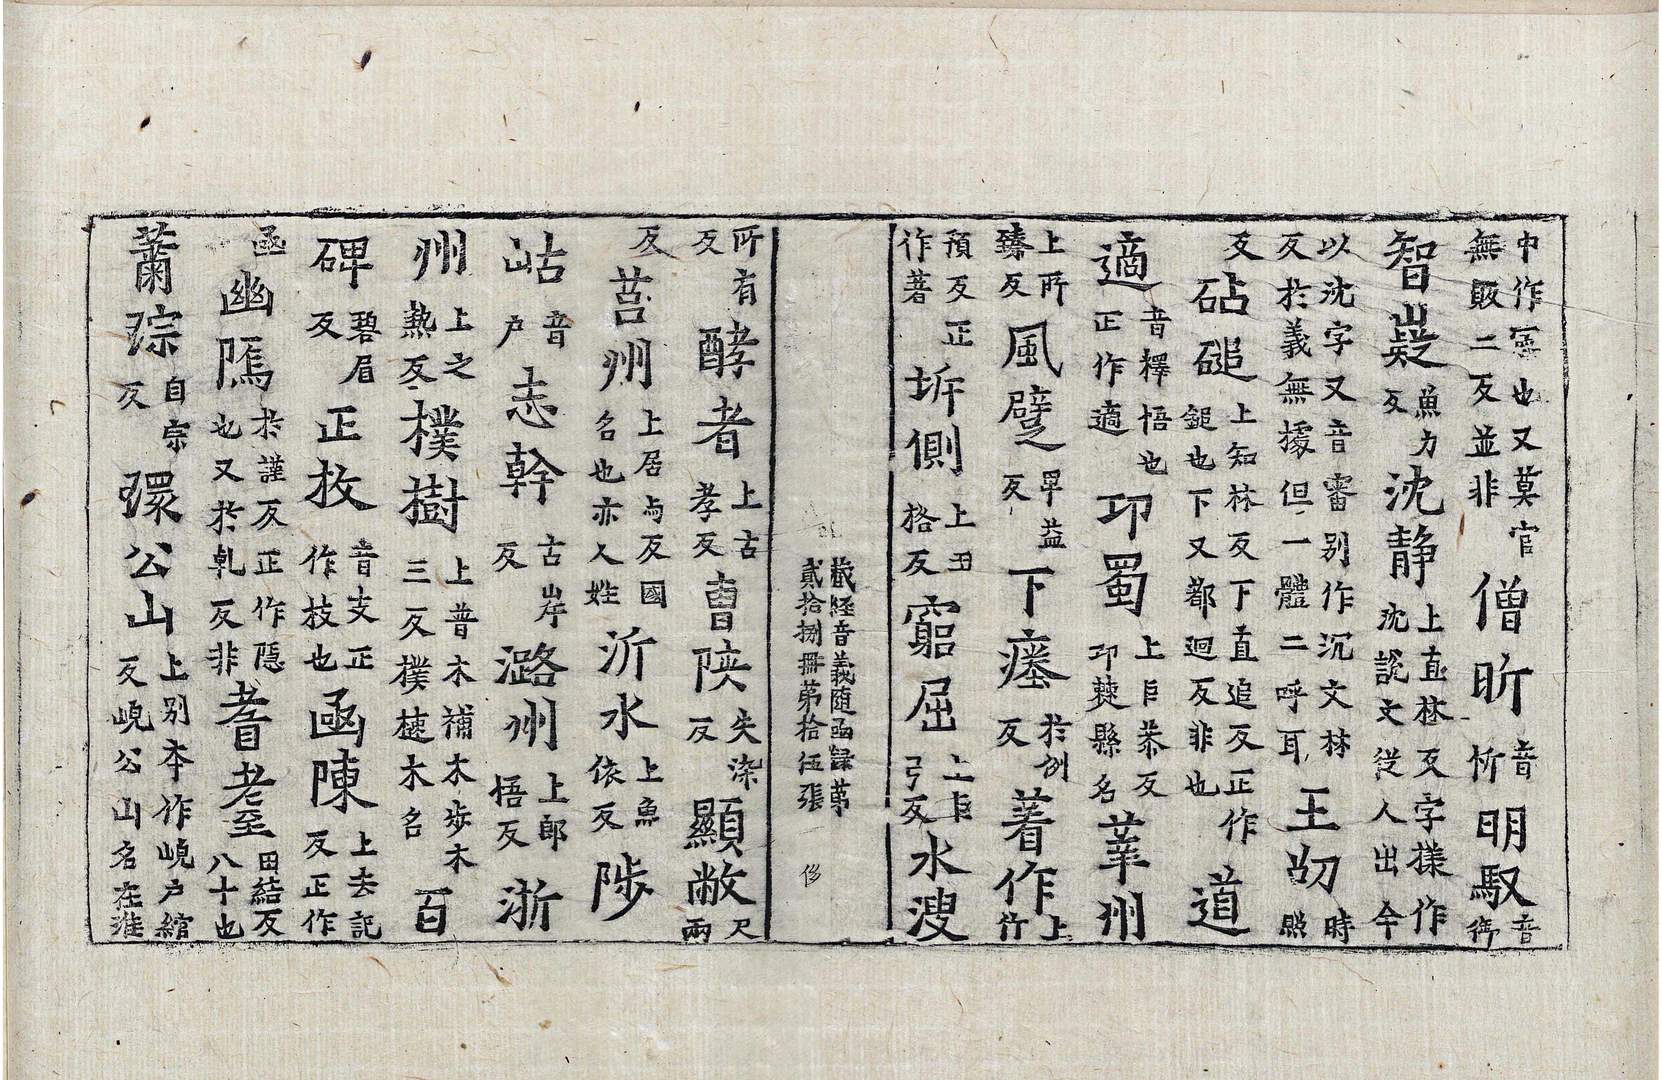 中作寍也又莫官無販二反並非僧昕音忻明馭音御
智嶷魚力反沈静上直林反字㨾作沈説文從人出今
以沈字又音審别作沉文林反於義無據但一體二呼耳王㓜時照
反砧磓上知林反下直追反正作鎚也下又都迴反非也道
適音釋悟也正作適邛蜀上巨恭反邛僰縣名莘州
上所臻反風躄畢益反下瘞於例反著作上竹
預反正作著坼側上丑格反窮屈上巨弓反水溲
藏經音義随函録第
貳拾捌冊第拾伍張
所有反酵者上古孝反曹陝失染反顯敞尺兩
反莒州上居与反國名也亦人姓沂水上魚依反陟
岵音户志幹古岸反潞州上郎悟反浙
州上之熱反樸樹上普木補木步木三反樸樕木名百
碑碧眉反正枚音支正作枝也凾陳上去記反正作
函幽隲於謹反正作隱也又於乹反非耆耋田結反八十也
蕭琮自宗反環公山上别本作峴户綰反峴公山名在淮